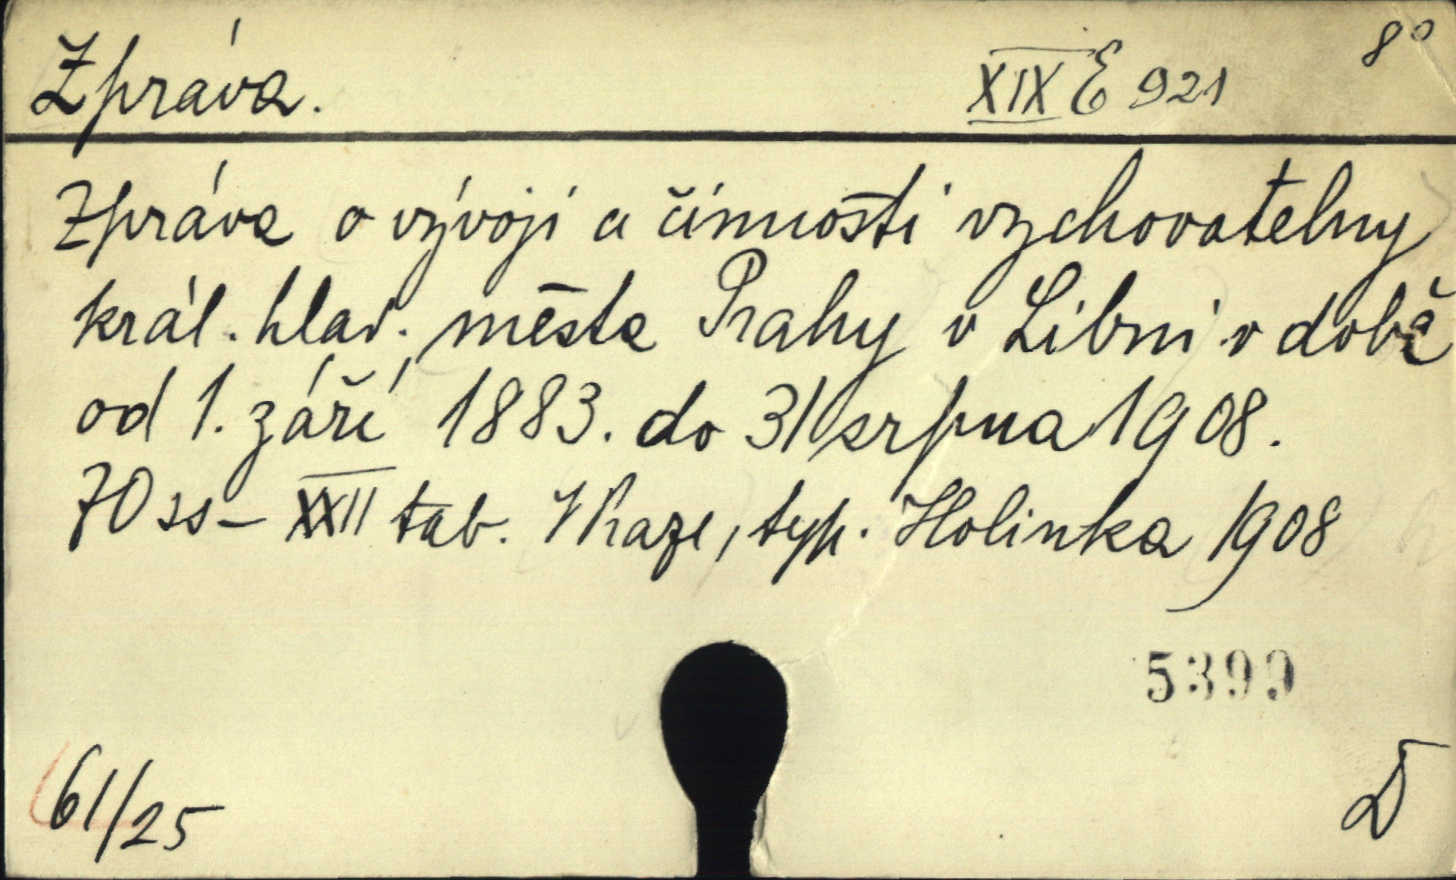 Zpráva. XIX E 921 8°
Zpráva o vývoji a činnosti vychovatelny
král. hlav. města Prahy v Libni v době
od 1. září 1883. do 31 srpna 1908.
70 ss – XXII tab. V Praze, typ. Holinka 1908
5399
61/25 D